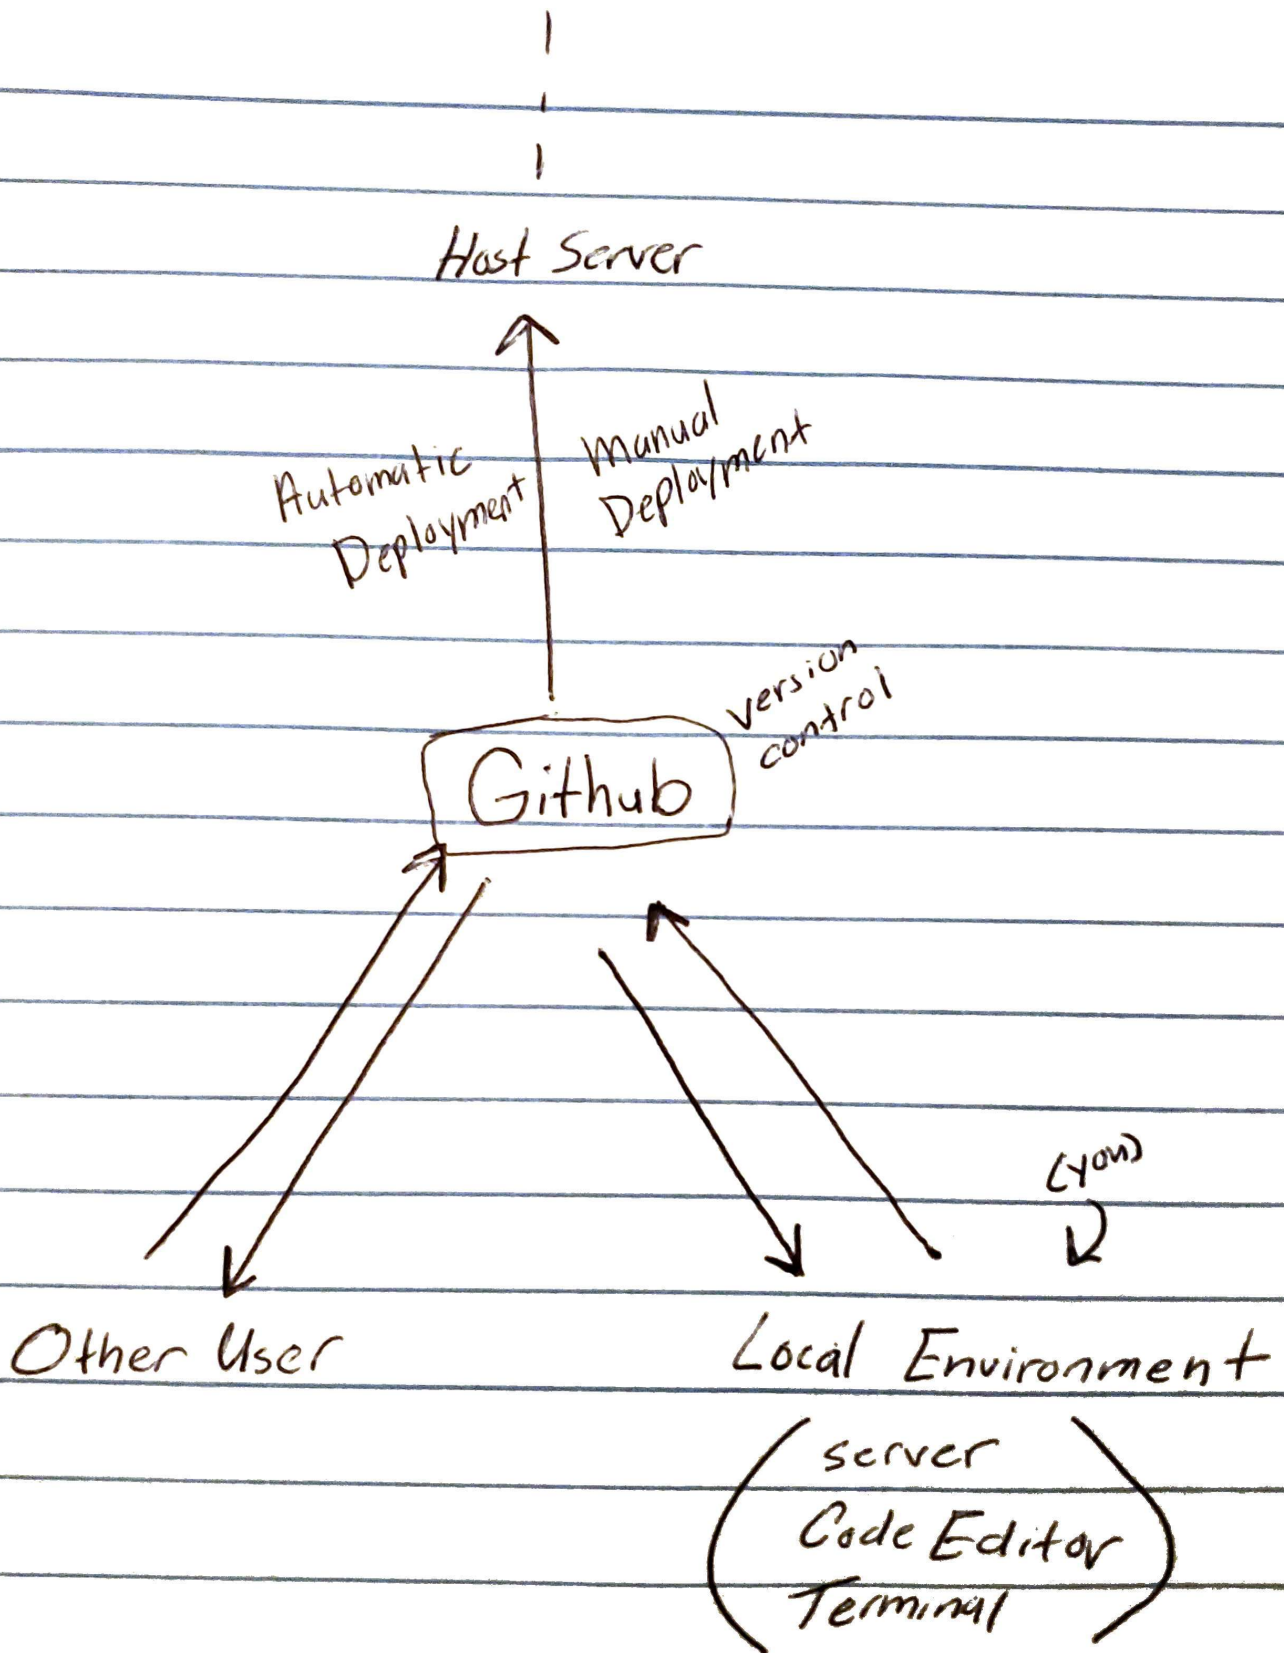 Host Server
Automatic
Deployment
Manual
Deployment
version
control
Github
(you)
Other User
Local Environment
server
Code Editor
Terminal